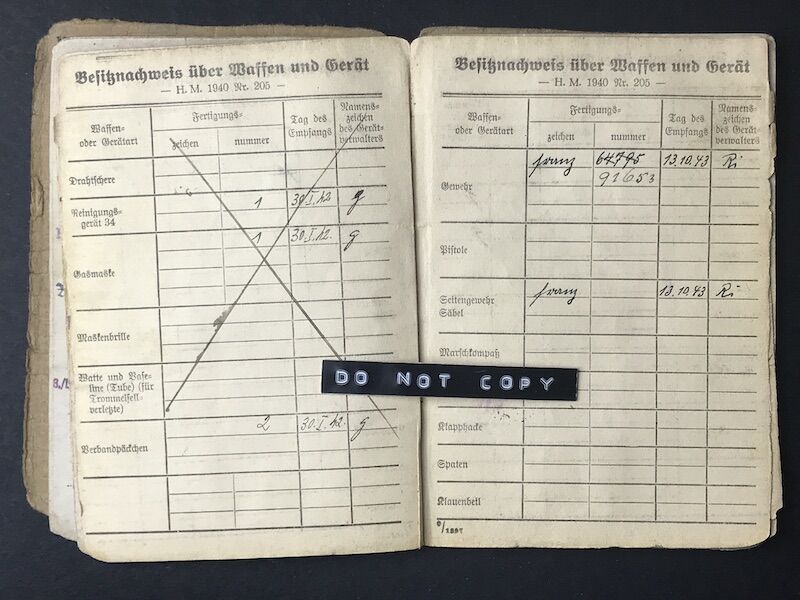 Besitznachweis über Waffen und Gerät
— H. M. 1940 Nr. 205 —
Waffen- oder Gerätart
Fertigungs-
zeichen nummer
Tag des Empfangs
Namens-zeichen des Gerät-verwalters
Drahtschere
Reinigungs-gerät 34 1 30.I.42 g
Gasmaske 1 30.I.42. g
Maskenbrille
Watte und Vase-
line (Tube) (für
Trommelfell-
verletzte)
Verbandpäckchen 2 30.I.42. g
Besitznachweis über Waffen und Gerät
— H. M. 1940 Nr. 205 —
Waffen- oder Gerätart
Fertigungs-
zeichen nummer
Tag des Empfangs
Namens-zeichen des Gerät-verwalters
Gewehr franz 64795 13.10.43 Ri
91653
Pistole
Seitengewehr franz 13.10.43 Ri
Säbel
Marschkompaß
DO NOT COPY
Klapphacke
Spaten
Klauenbeil